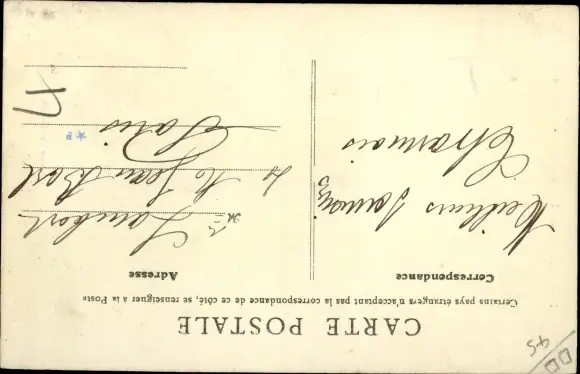 CARTE POSTALE
Certains pays étrangers n'acceptant pas la correspondance de ce côté, se renseigner à la Poste
Correspondance
Adresse
Meilleurs
Charmais
Mr Lambert
Jean Bart
Paris
DD
45